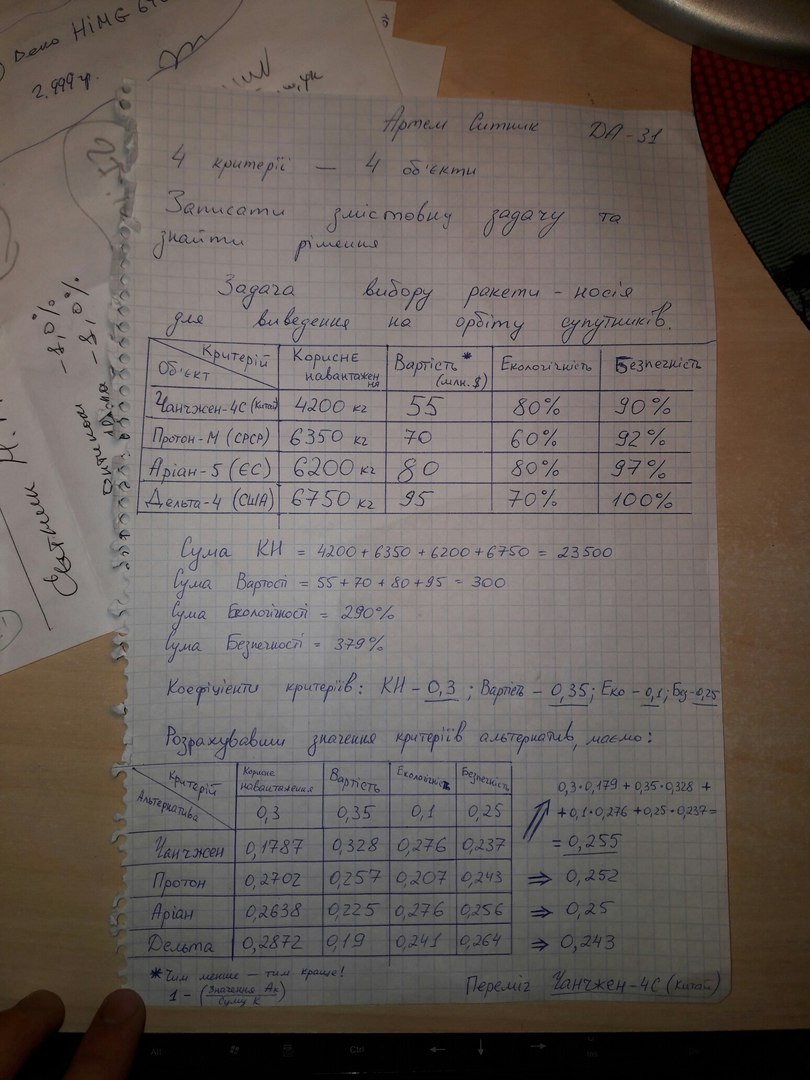 Demo HiMG
2.999гр.
Ситник
-8,0%
-8,0%
Артем Ситник ДА-31
4 критерії — 4 об'єкти
Записати змістовну задачу та
знайти рішення
Задача вибору ракети-носія
для виведення на орбіту супутників.
Критерій Об'єкт | Корисне навантаження | Вартість* (млн. $) | Екологічність | Безпечність
Чанчжен-4С (Китай) | 4200 кг | 55 | 80% | 90%
Протон-М (СРСР) | 6350 кг | 70 | 60% | 92%
Аріан-5 (ЄС) | 6200 кг | 80 | 80% | 97%
Дельта-4 (США) | 6750 кг | 95 | 70% | 100%
Сума КН = 4200 + 6350 + 6200 + 6750 = 23500
Сума Вартості = 55 + 70 + 80 + 95 = 300
Сума Екологічності = 290%
Сума Безпечності = 379%
Коефіцієнти критеріїв: КН - 0,3 ; Вартість - 0,35; Еко - 0,1; Без - 0,25
Розрахувавши значення критеріїв альтернатив, маємо:
Критерій Альтернатива | Корисне навантаження | Вартість | Екологічність | Безпечність
0,3 | 0,35 | 0,1 | 0,25
0,3·0,179 + 0,35·0,328 +
+ 0,1·0,276 + 0,25·0,237 =
Чанчжен | 0,1787 | 0,328 | 0,276 | 0,237 = 0,255
Протон | 0,2702 | 0,257 | 0,207 | 0,243 ⇒ 0,252
Аріан | 0,2638 | 0,225 | 0,276 | 0,256 ⇒ 0,25
Дельта | 0,2872 | 0,19 | 0,241 | 0,264 ⇒ 0,243
*Чим менше — тим краще!
1 - (Значення Ак / Суму К)
Переміг Чанчжен-4С (Китай)
Alt Ctrl ← ↓ →